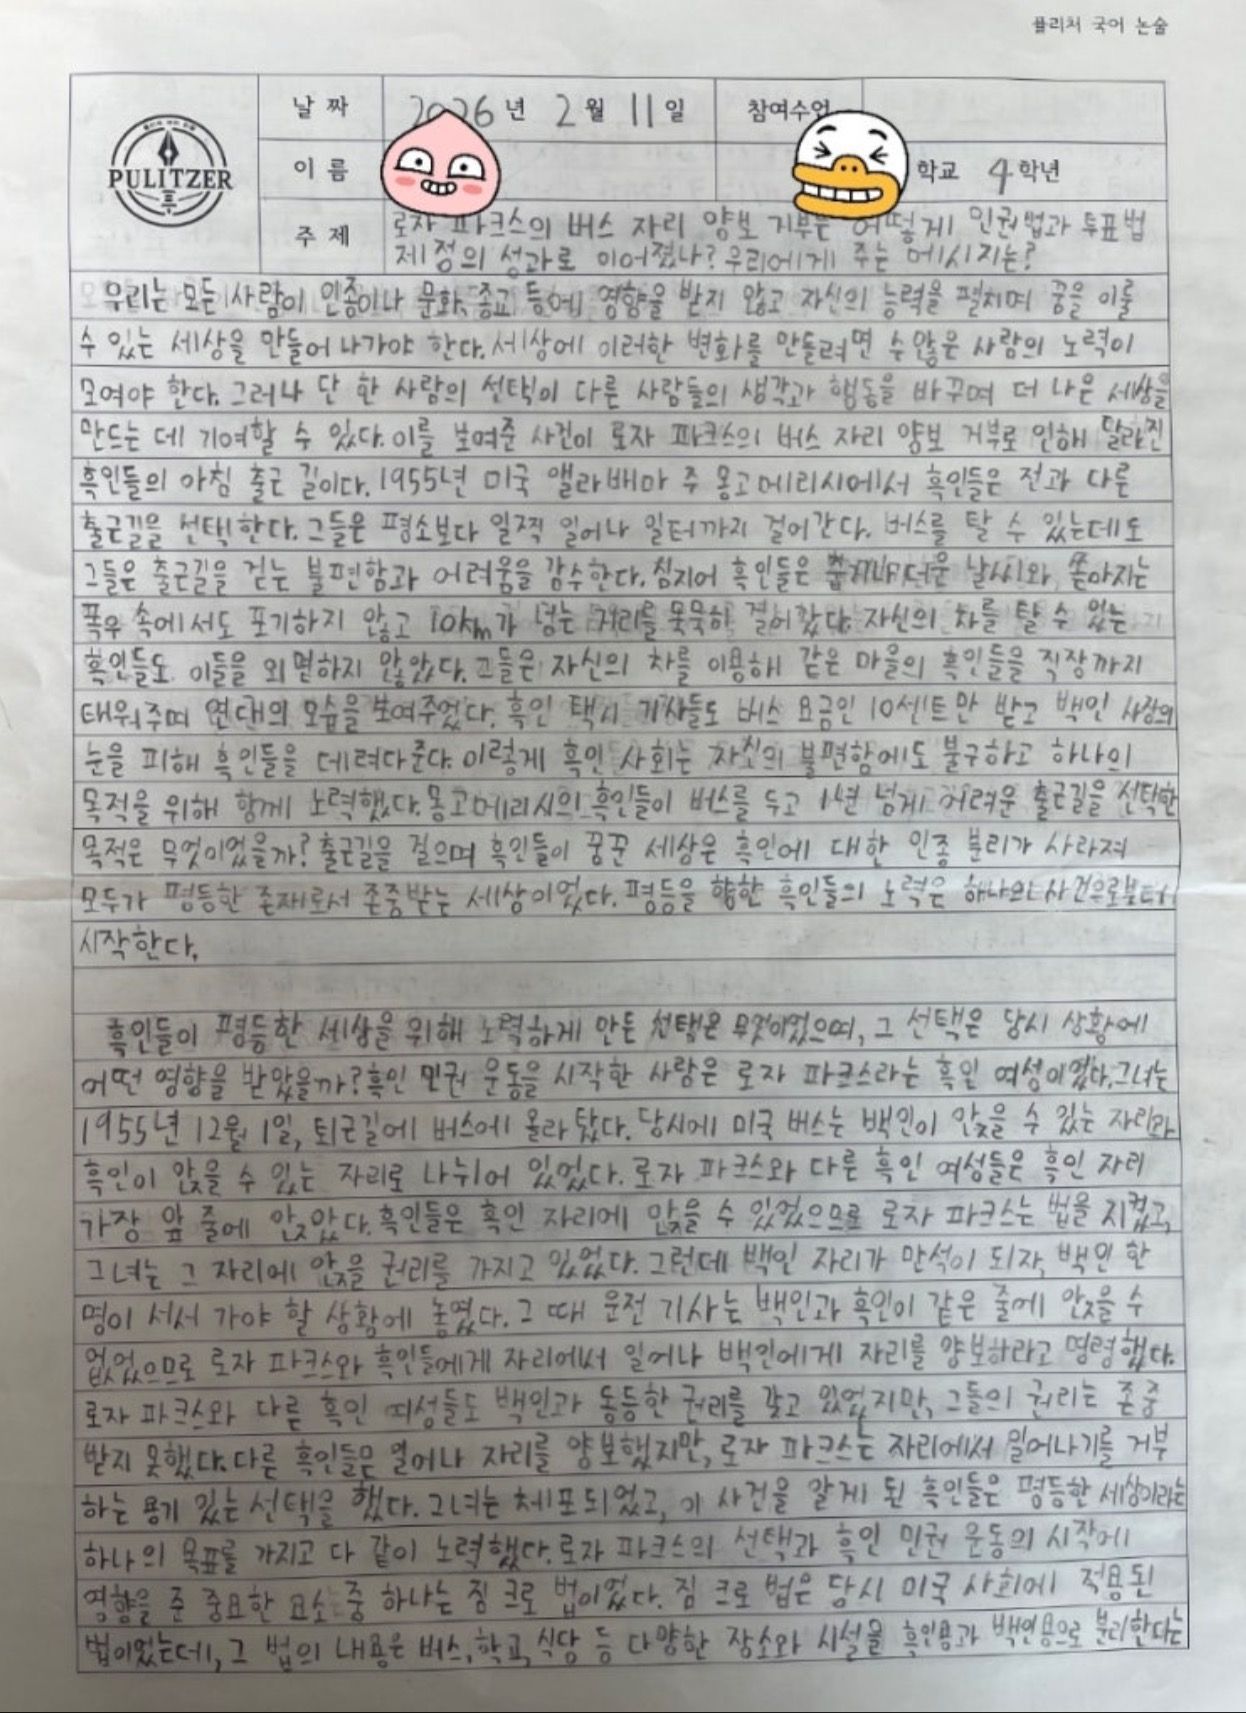 플리처 국어 논술
PULITZER
날 짜 2026년 2월 11일 참여수업
이 름 학교 4학년
주 제 로자 파크스의 버스 자리 양보 거부는 어떻게 민권법과 투표법
제정의 성과로 이어졌나? 우리에게 주는 메시지는?
우리는 모든 사람이 인종이나 문화, 종교 등에 영향을 받지 않고 자신의 능력을 펼치며 꿈을 이룰
수 있는 세상을 만들어 나가야 한다. 세상에 이러한 변화를 만들려면 수 않은 사람의 노력이
모여야 한다. 그러나 단 한 사람의 선택이 다른 사람들의 생각과 행동을 바꾸며 더 나은 세상을
만드는 데 기여할 수 있다. 이를 보여준 사건이 로자 파크스의 버스 자리 양보 거부로 인해 달라진
흑인들의 아침 출근 길이다. 1955년 미국 앨라배마 주 몽고메리시에서 흑인들은 전과 다른
출근길을 선택한다. 그들은 평소보다 일찍 일어나 일터까지 걸어간다. 버스를 탈 수 있는데도
그들은 출근길을 걷는 불편함과 어려움을 감수한다. 심지어 흑인들은 춥거나 더운 날씨와, 쏟아지는
폭우 속에서도 포기하지 않고 10km가 넘는 거리를 묵묵히 걸어갔다. 자신의 차를 탈 수 있는
흑인들도 이들을 외면하지 않았다. 그들은 자신의 차를 이용해 같은 마을의 흑인들을 직장까지
태워주며 연대의 모습을 보여주었다. 흑인 택시 기사들도 버스 요금인 10센트만 받고 백인 사장의
눈을 피해 흑인들을 데려다준다. 이렇게 흑인 사회는 자신의 불편함에도 불구하고 하나의
목적을 위해 함께 노력했다. 몽고메리시의 흑인들이 버스를 두고 1년 넘게 어려운 출근길을 선택한
목적은 무엇이었을까? 출근길을 걸으며 흑인들이 꿈꾼 세상은 흑인에 대한 인종 분리가 사라져
모두가 평등한 존재로서 존중받는 세상이었다. 평등을 향한 흑인들의 노력은 하나의 사건으로부터
시작한다.
흑인들이 평등한 세상을 위해 노력하게 만든 선택은 무엇이었으며, 그 선택은 당시 상황에
어떤 영향을 받았을까? 흑인 민권 운동을 시작한 사람은 로자 파크스라는 흑인 여성이었다. 그녀는
1955년 12월 1일, 퇴근길에 버스에 올라탔다. 당시에 미국 버스는 백인이 앉을 수 있는 자리와
흑인이 앉을 수 있는 자리로 나뉘어 있었다. 로자 파크스와 다른 흑인 여성들은 흑인 자리
가장 앞 줄에 앉았다. 흑인들은 흑인 자리에 앉을 수 있었으므로 로자 파크스는 법을 지켰고,
그녀는 그 자리에 앉을 권리를 가지고 있었다. 그런데 백인 자리가 만석이 되자, 백인 한
명이 서서 가야 할 상황에 놓였다. 그 때 운전 기사는 백인과 흑인이 같은 줄에 앉을 수
없었으므로 로자 파크스와 흑인들에게 자리에서 일어나 백인에게 자리를 양보하라고 명령했다.
로자 파크스와 다른 흑인 여성들도 백인과 동등한 권리를 갖고 있었지만, 그들의 권리는 존중
받지 못했다. 다른 흑인들은 일어나 자리를 양보했지만, 로자 파크스는 자리에서 일어나기를 거부
하는 용기 있는 선택을 했다. 그녀는 체포되었고, 이 사건을 알게 된 흑인들은 평등한 세상이라는
하나의 목표를 가지고 다 같이 노력했다. 로자 파크스의 선택과 흑인 민권 운동의 시작에
영향을 준 중요한 요소 중 하나는 짐 크로 법이었다. 짐 크로 법은 당시 미국 사회에 적용된
법이었는데, 그 법의 내용은 버스, 학교, 식당 등 다양한 장소와 시설을 흑인용과 백인용으로 분리한다는